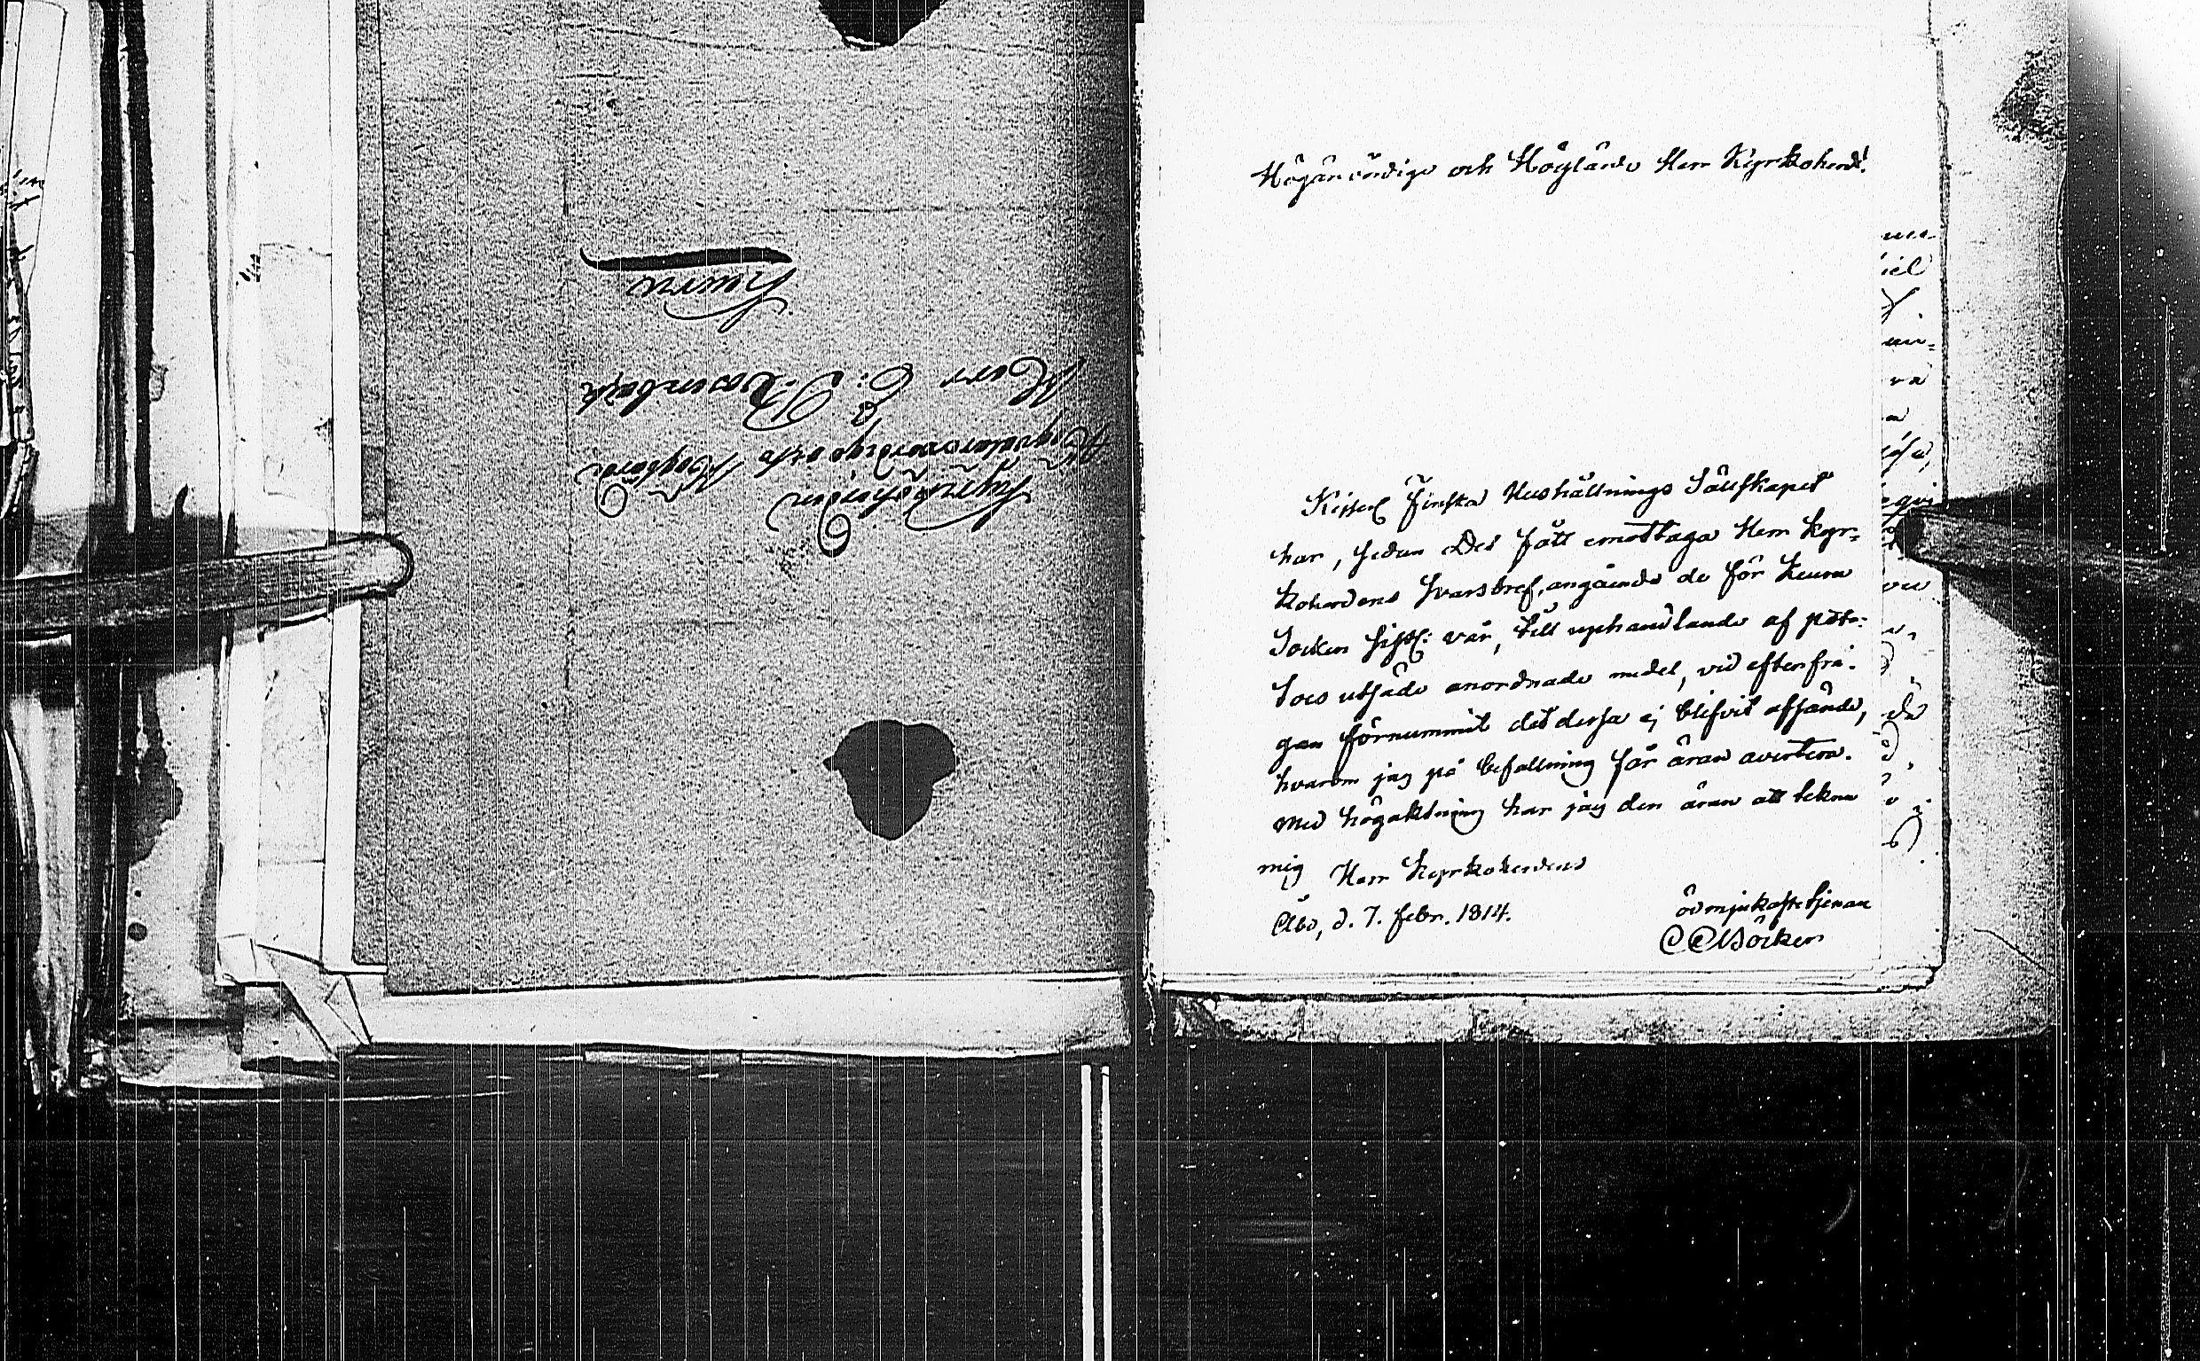 Kyrkoherden
Högvälärevördige och Höglärde
Herr C: Rosenback
Keuru
Högärevördige och Höglärde Herr Kyrkoherde!
Kejserl Finska Hushållnings Sällskapet
har, sedan Det fått emottaga Herr Kyr-
koherdens svarsbref, angående de för Keuru
Socken sistl: vår, till uphandlande af potä-
toes utsäde anordnade medel, vid efterfrå-
gan förnummit det dessa ej blifvit afsände,
hvarom jag på befallning får äran avertera.
Med högaktning har jag den äran att tekna
mig Herr Kyrkoherdens
ödmjukaste tjenare
Åbo, d. 7. febr. 1814.
CCBöcker